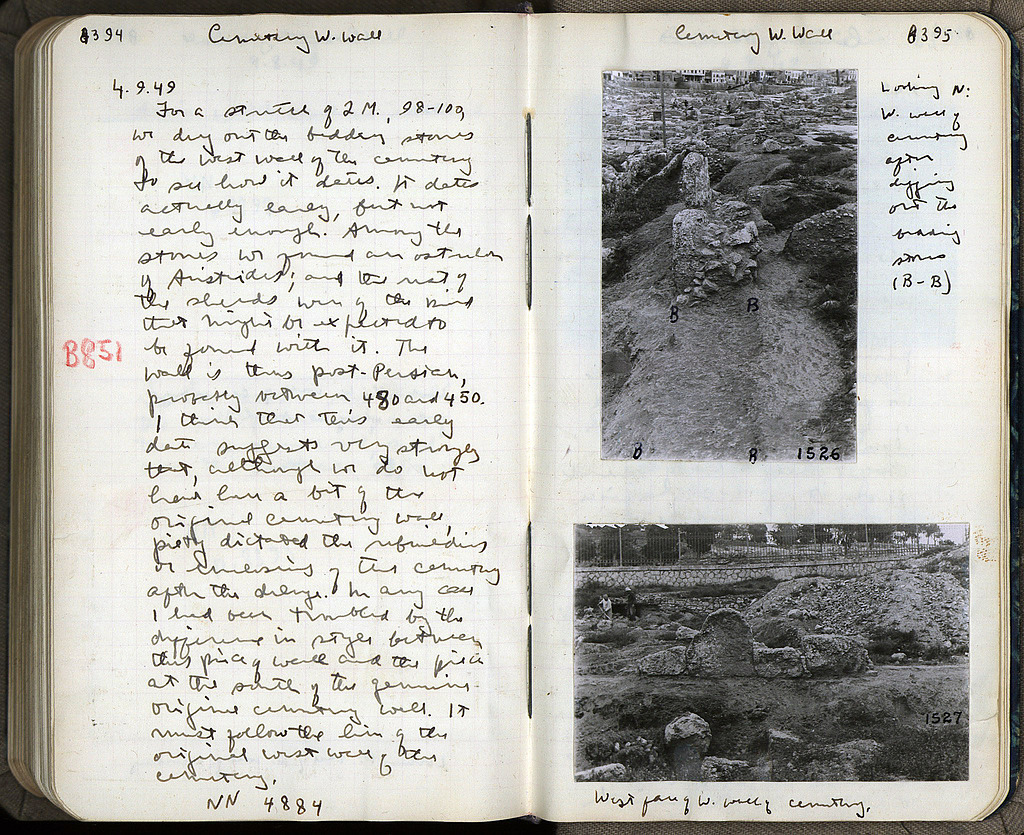 8394
Cemetery W. Wall
4.9.49
For a stretch of 2 M., 98-100,
we dug out the bedding stones
of the west wall of the cemetery
to see how it dates. It dates
actually early, but not
early enough. Among the
stones we found an ostrakon
of Aristeides; and the rest of
the sherds were of the kind
that might be expected to
be found with it. The
B851
wall is thus post-Persian,
probably between 480 and 450.
I think that this early
date suggests very strongly
that, although we do not
have here a bit of the
original cemetery wall,
piety dictated the rebuilding
or enclosing of the cemetery
after the deluge. In any case
I had been troubled by the
difference in styles between
this piece of wall and the piece
at the south of the genuine
original cemetery wall. It
must follow the line of the
original west wall of the
cemetery.
NN 4884
Cemetery W. Wall
8395
Looking N:
W. wall of
cemetery
after
digging
out the
bedding
stones
(B-B)
B
B
B
B
1526
1527
West face of W. wall of cemetery.